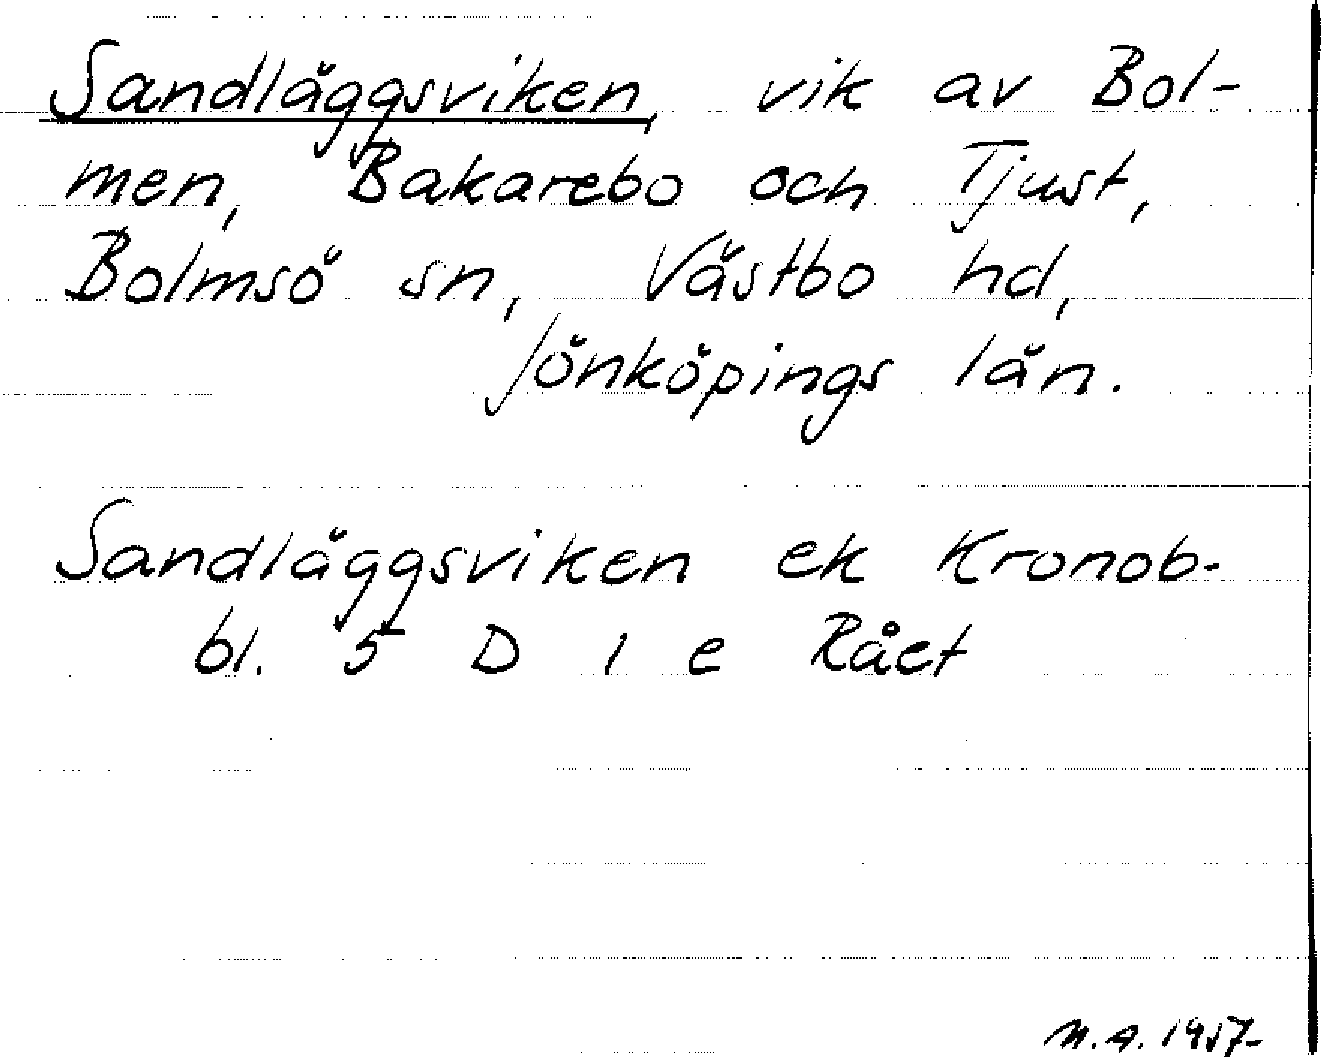 Sandläggsviken, vik av Bol-
men, Bakarebo och Tjust,
Bolmsö sn, Västbo hd,
Jönköpings län.
Sandläggsviken ek Kronob-
bl. 5 D 1 e Rået
M.A. 1957-